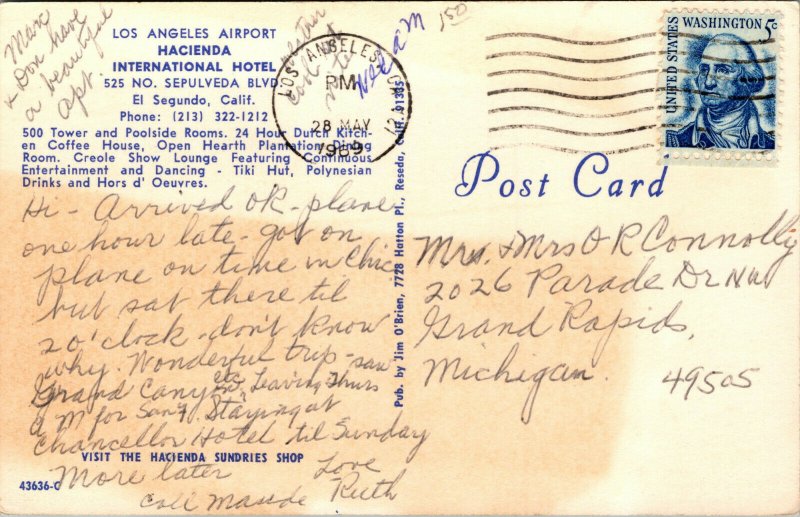 Max
& Don have
a beautiful
apt.
LOS ANGELES AIRPORT
HACIENDA
INTERNATIONAL HOTEL
525 NO. SEPULVEDA BLVD.
El Segundo, Calif.
Phone: (213) 322-1212
500 Tower and Poolside Rooms. 24 Hour Dutch Kitch-
en Coffee House, Open Hearth Plantation Dining
Room. Creole Show Lounge Featuring Continuous
Entertainment and Dancing - Tiki Hut, Polynesian
Drinks and Hors d' Oeuvres.
Hi - Arrived OK - plane
one hour late - got on
plane on time in Chic
but sat there til
2 o'clock - don't know
why. Wonderful trip - saw
Grand Canyon Leaving Thurs
A M for San F. Staying at
Chancellor Hotel til Sunday
More later Love
Call Maude Ruth
VISIT THE HACIENDA SUNDRIES SHOP
43636-C
Pub. by Jim O'Brien, 7728 Hatton Pl., Reseda, Calif. 91335
LOS ANGELES, CA
PM
28 MAY
1969
Wed AM
150
UNITED STATES
WASHINGTON 5c
Post Card
Mr. & Mrs O R Connolly
2026 Parade Dr NW
Grand Rapids,
Michigan. 49505